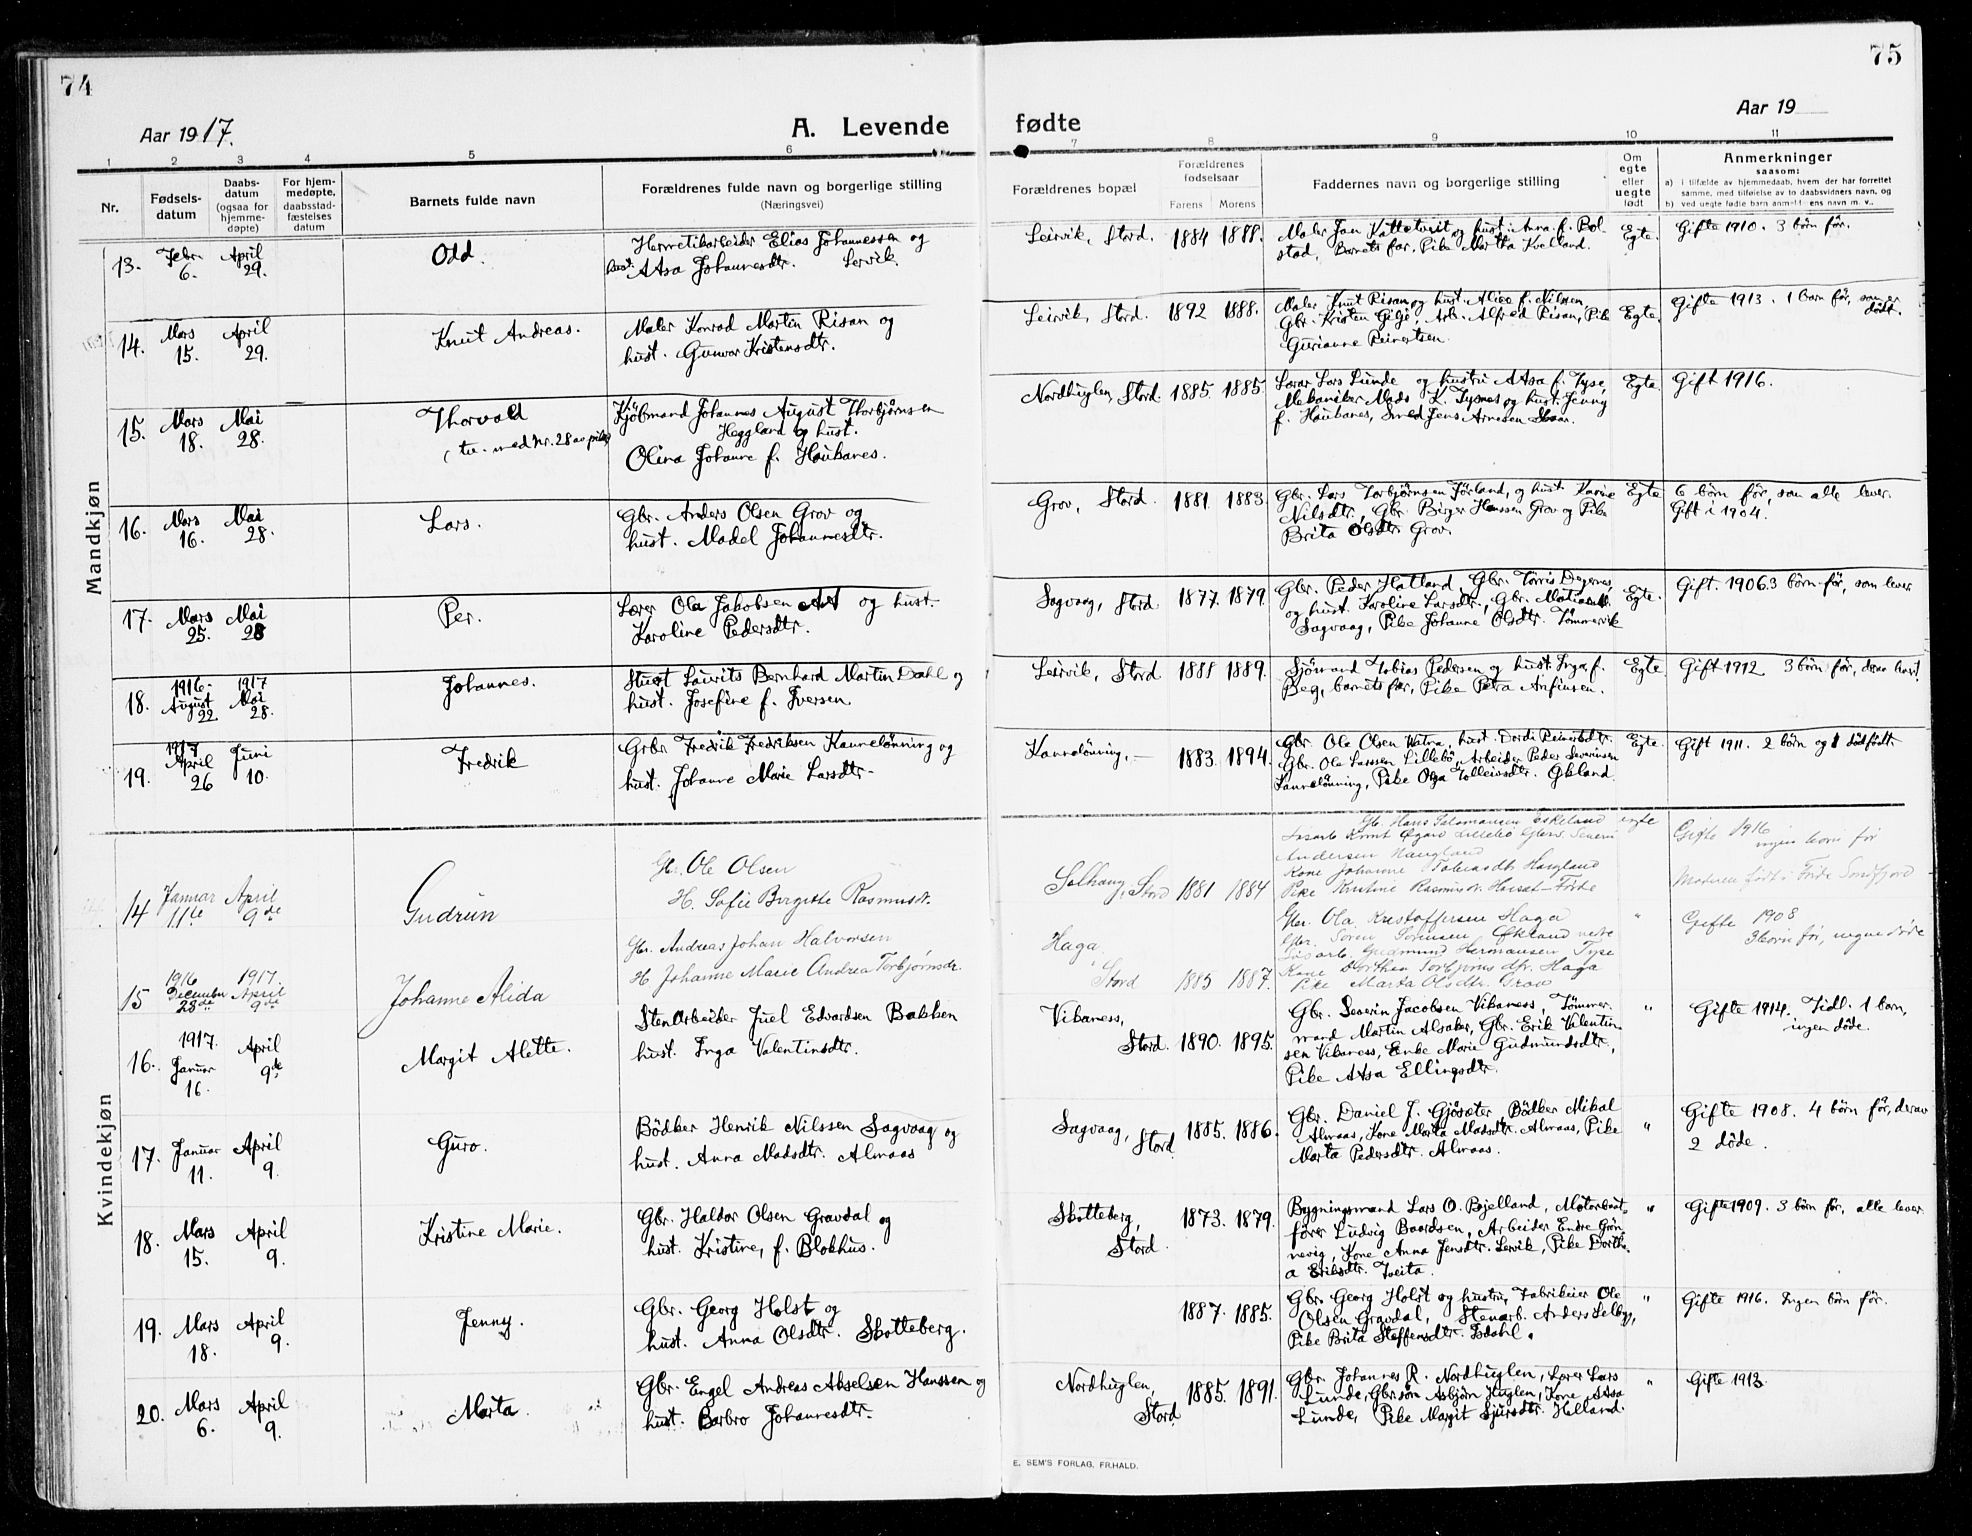 74
75
Aar 1917.
A. Levende fødte
Aar 19
1 2 3 4 5 6 7 8 9 10 11
Nr.
Fødsels-
datum
Daabs-
datum
(ogsaa for
hjemme-
døpte)
For hjem-
medøpte,
daabsstad-
fæstelses
datum
Barnets fulde navn
Forældrenes fulde navn og borgerlige stilling
(Næringsvei)
Forældrenes bopæl
Forældrenes
fødselsaar
Farens Morens
Faddernes navn og borgerlige stilling
Om
egte
eller
uegte
født
Anmerkninger
saasom:
a) i tilfælde av hjemmedaab, hvem der har forrettet
samme, med tilføielse av to daabsvidners navn, og
b) ved uegte fødte barn anmelderens navn m. v.
Mandkjøn
13. Febr. 6. April 29.
Odd.
Hermetikarbeider Elias Johannessen og
hust. Aasa Johannesdtr. Lervik.
Leirvik, Stord. 1884 1888.
Maler Jan Kattetveit og hust. Anna f. Bol-
stad, Barnets far, Pike Martha Kvelland.
Egte.
Gifte 1910. 3 børn før.
14. Mars 15. April 29.
Knut Andreas.
Maler Konrad Martin Risan og
hust. Gunvor Kristensdtr.
Leirvik, Stord. 1892 1888.
Maler Knut Risan og hust. Alice f. Nilssen,
Gbr. Kristen Gilje, Arb. Alfred Risan, Pike
Gurianne Reinertsen.
Egte.
Gifte 1913. 1 barn før, som er
dødt.
15. Mars 18. Mai 28.
Thorvald
(tv. med Nr. 28 av piker)
Kjøbmand Johannes August Thorbjørnsen
Heggland og hust.
Olina Johanne f. Haukanes.
Nordhuglen, Stord 1885. 1885.
Lærar Lars Lunde og hustru Aasa f. Tyse,
Mekaniker Mads K. Tysnes og hust. Jenny
f. Haukanes, Smed Jens Arnesen Skaar.
Egte.
Gift 1916.
16. Mars 16. Mai 28.
Lars.
Gbr. Anders Olsen Grov og
hust. Madel Johannesdtr.
Grov, Stord. 1881. 1883.
Gbr. Lars Torbjørnsen Førland, og hust. Karine
Nilsdtr., Gbr. Birger Hanssen Grov og Pike
Brita Olsdtr. Grov.
Egte
6 børn før, som alle lever.
Gift i 1904.
17. Mars 25. Mai 28
Per.
Lærer Ola Jakobsen og hust.
Karoline Pedersdtr.
Sagvaag, Stord 1877. 1879.
Gbr. Peder Hatland, Gbr. Tørris Degernes,
og hust. Karoline Larsdtr., Gbr.
Sagvaag, Pike Johanne Olsdtr. Tømmervik
Egte.
Gift. 1906. 3 børn før, som lever
18. 1916 August 22. 1917 Mai 28.
Johannes.
Stuert Laurits Bernhard Martin Dahl og
hust. Josefine f. Iversen.
Leirvik, Stord 1888 1889.
Sjömand Tobias Pedersen og hust. Inga f.
Beg, barnets far, Pike Petra Anfinsen.
Egte
Gift 1912 3 børn før,
19. 1917 April 26 Juni 10.
Fredrik
Gbr. Fredrik Fredriksen Kannelønning og
hust. Johanne Marie Larsdtr.
Kannelønning, — 1883. 1894.
Gbr. Ole Olsen Vatna, hust. Dordi Reinertsdtr.
Gbr. Ole Larssen Lillebø, Arbeider Peder Severinsen
Kannelønning, Pike Olga Tolleivsdtr. Økland.
Egte.
Gift 1911. 2 børn og 1 dødfødt.
Kvindekjøn
14 Januar 11te April 9de
Gudrun
Gbr. Ole Olsen
H. Sofie Birgitte Rasmusdtr.
Solhaug, Stord 1881 1884
Gbr. Hans Salamonsen Eskeland
Losarb. Knut Øgard Lillebø Gbrs. Severin
Andersen Haugland
Kone Johanne Haugland
Pike Kristine Rasmusdtr. – Førde
egte
Gifte 1916
ingen barn før
Moderen født i Førde Søndfjord
15 1916 December 28de 1917. April 9de
Johanne Alida
Gbr. Andreas Johan Halvorsen
H. Johanne Marie Andrea Torbjørnsdr.
Haga, Stord 1885 1887.
Gbr. Ola Kristoffersen Haga
Gbr. Søren Sørensen Økland
Losarb. Gudmund Hermansen Tyse
Kone Dorthea Torbjørns dtr. Haga
Pike Marta Olsdtr. Grov
"
Gifte 1908
3 børn før, ingen døde
16. 1917. Januar 16. April 9de
Margit Alette.
Stenarbeider Juel Edvardsen Bakken
hust. Inga Valentinsdtr.
Vikaness, Stord. 1890. 1895.
Gbr. Severin Jacobsen Vikaness, Tømmer-
mand Martin Alsaker, Gbr. Erik Valentin-
sen Vikaness, Enke Marie Gudmundsdtr.,
Pike Aasa Ellingsdtr.
"
Gifte 1914. Tidl. 1 barn,
ingen døde.
17. Januar 11. April 9.
Guro.
Bödker Henrik Nilssen Sagvaag og
hust. Anna Madsdtr. Almaas
Sagvaag, Stord 1885. 1886.
Gbr. Daniel J. Gjøsæter, Bødker Mikal
Almaas, Kone Marta Madsdtr. Almaas, Pike
Marta Pedersdtr. Almaas.
"
Gifte 1908. 4 børn før, derav
2 døde.
18. Mars 15. April 9.
Kristine Marie.
Gbr. Haldor Olsen Gravdal og
hust. Kristine, f. Blokhus.
Skotteberg, Stord. 1873. 1879.
Bygningsmand Lars O. Bjelland, Motorbaat-
fører Ludvig Baardsen, Arbeider Endre Grøn-
nevig, Kone Anna Jensdtr. Lervik, Pike Dorthe-
a Eriksdtr. Tveita.
"
Gifte 1909. 3 børn før, alle lever.
19. Mars 18. April 9.
Jenny.
Gbr. Georg Holst og
hust. Anna Olsdtr. Skotteberg.
1887. 1885.
Gbr. Georg Holst og hustru, Fabrikeier Ole
Olsen Gravdal, Stenarb. Anders Selbye,
Pike Brita Steffensdtr. Isdahl.
"
Gifte 1916. Ingen børn før.
20. Mars 6. April 9.
Marta.
Gbr. Engel Andreas Akselsen Hanssen og
hust. Barbro Johannesdtr.
Nordhuglen, Stord 1885. 1891.
Gbr. Johannes R. Nordhuglen, Lærer Lars
Lunde, Gbr. søn Asbjørn Huglen, Kone Aasa
Lunde, Pike Margit Sjursdtr. Helland.
"
Gifte 1913.
E. SEM'S FORLAG, FR.HALD.